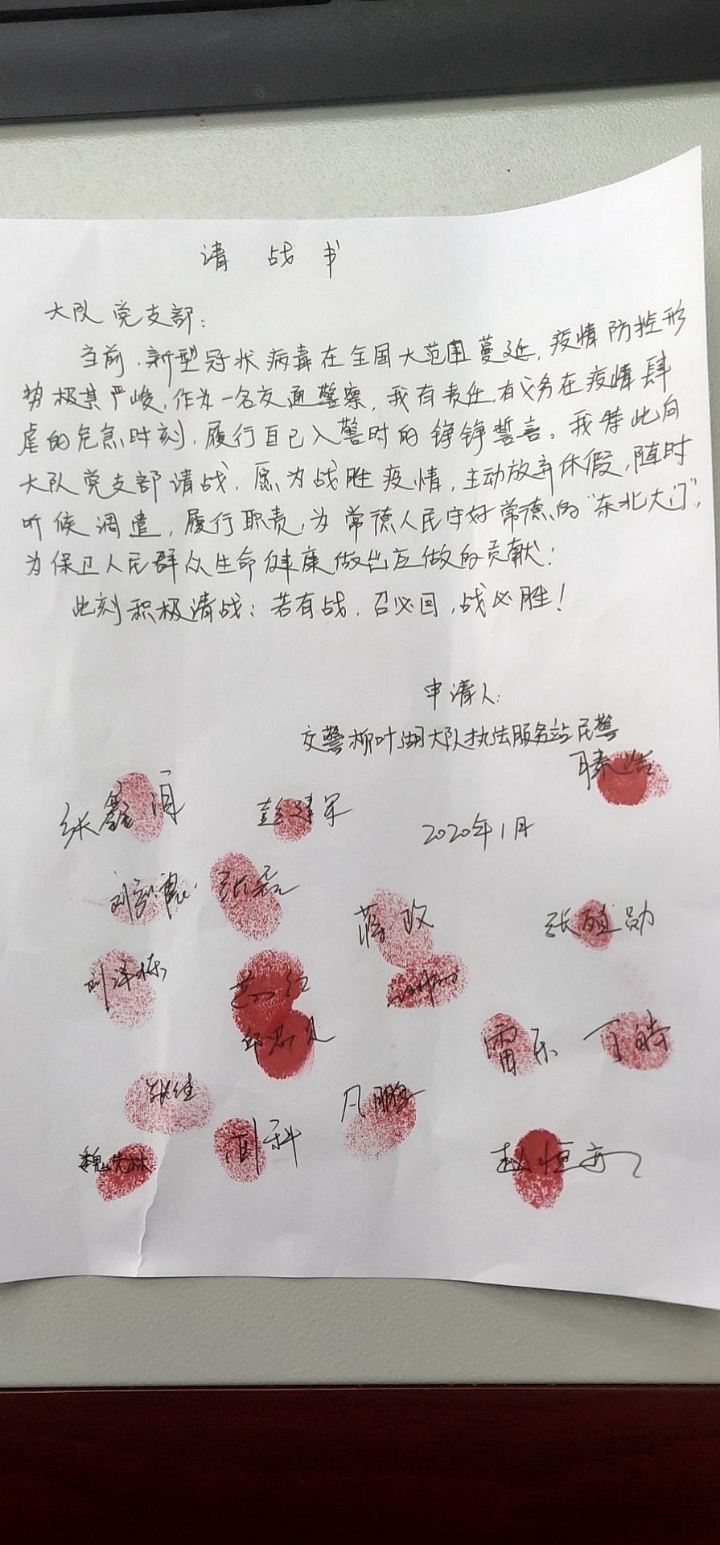 请战书
大队党支部：
当前，新型冠状病毒在全国大范围蔓延，疫情防控形
势极其严峻，作为一名交通警察，我有责任有义务在疫情肆
虐的危急时刻，履行自己入警时的铮铮誓言。我特此向
大队党支部请战，愿为战胜疫情，主动放弃休假，随时
听候调遣，履行职责，为常德人民守好常德的“东北大门”，
为保卫人民群众生命健康做出应做的贡献！
此刻积极请战：若有战，召必回，战必胜！
申请人：
交警柳叶湖大队执法服务站民警
2020年1月
彭建军
张磊
蒋政
刘洋栋
雷乐
丁晴
张佳
凡鹏
魏先林
周科